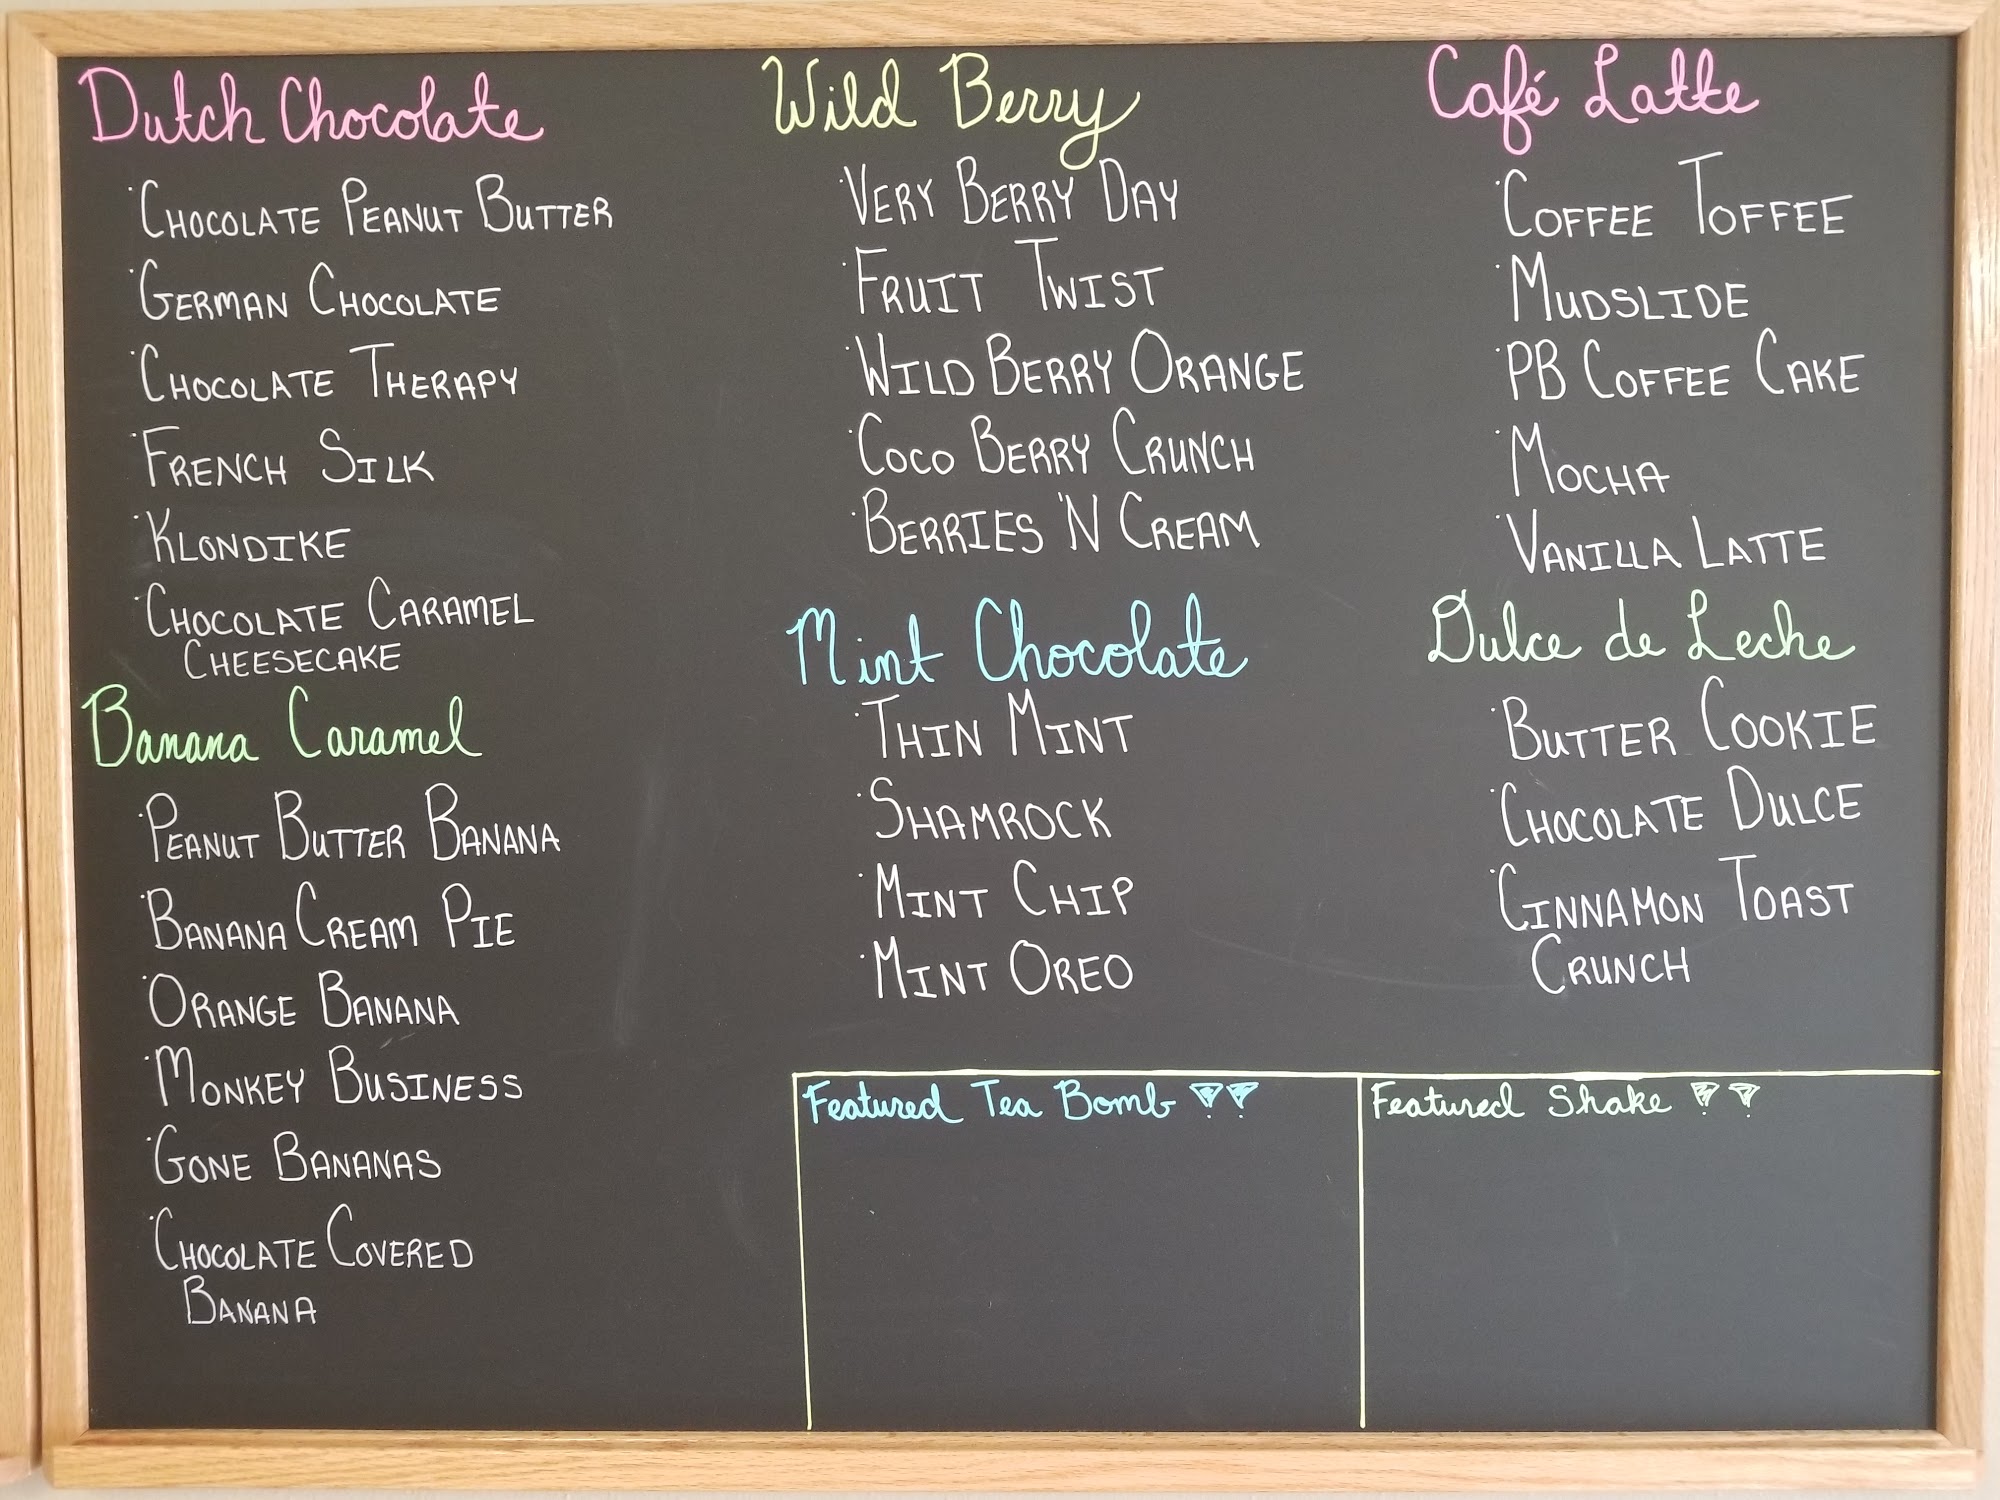 Dutch Chocolate
·Chocolate Peanut Butter
·German Chocolate
·Chocolate Therapy
·French Silk
·Klondike
·Chocolate Caramel
Cheesecake
Banana Caramel
·Peanut Butter Banana
·Banana Cream Pie
·Orange Banana
·Monkey Business
·Gone Bananas
·Chocolate Covered
Banana
Wild Berry
·Very Berry Day
·Fruit Twist
·Wild Berry Orange
·Coco Berry Crunch
·Berries 'N Cream
Mint Chocolate
·Thin Mint
·Shamrock
·Mint Chip
·Mint Oreo
Café Latte
·Coffee Toffee
·Mudslide
·PB Coffee Cake
·Mocha
·Vanilla Latte
Dulce de Leche
·Butter Cookie
·Chocolate Dulce
·Cinnamon Toast
Crunch
Featured Tea Bomb
Featured Shake